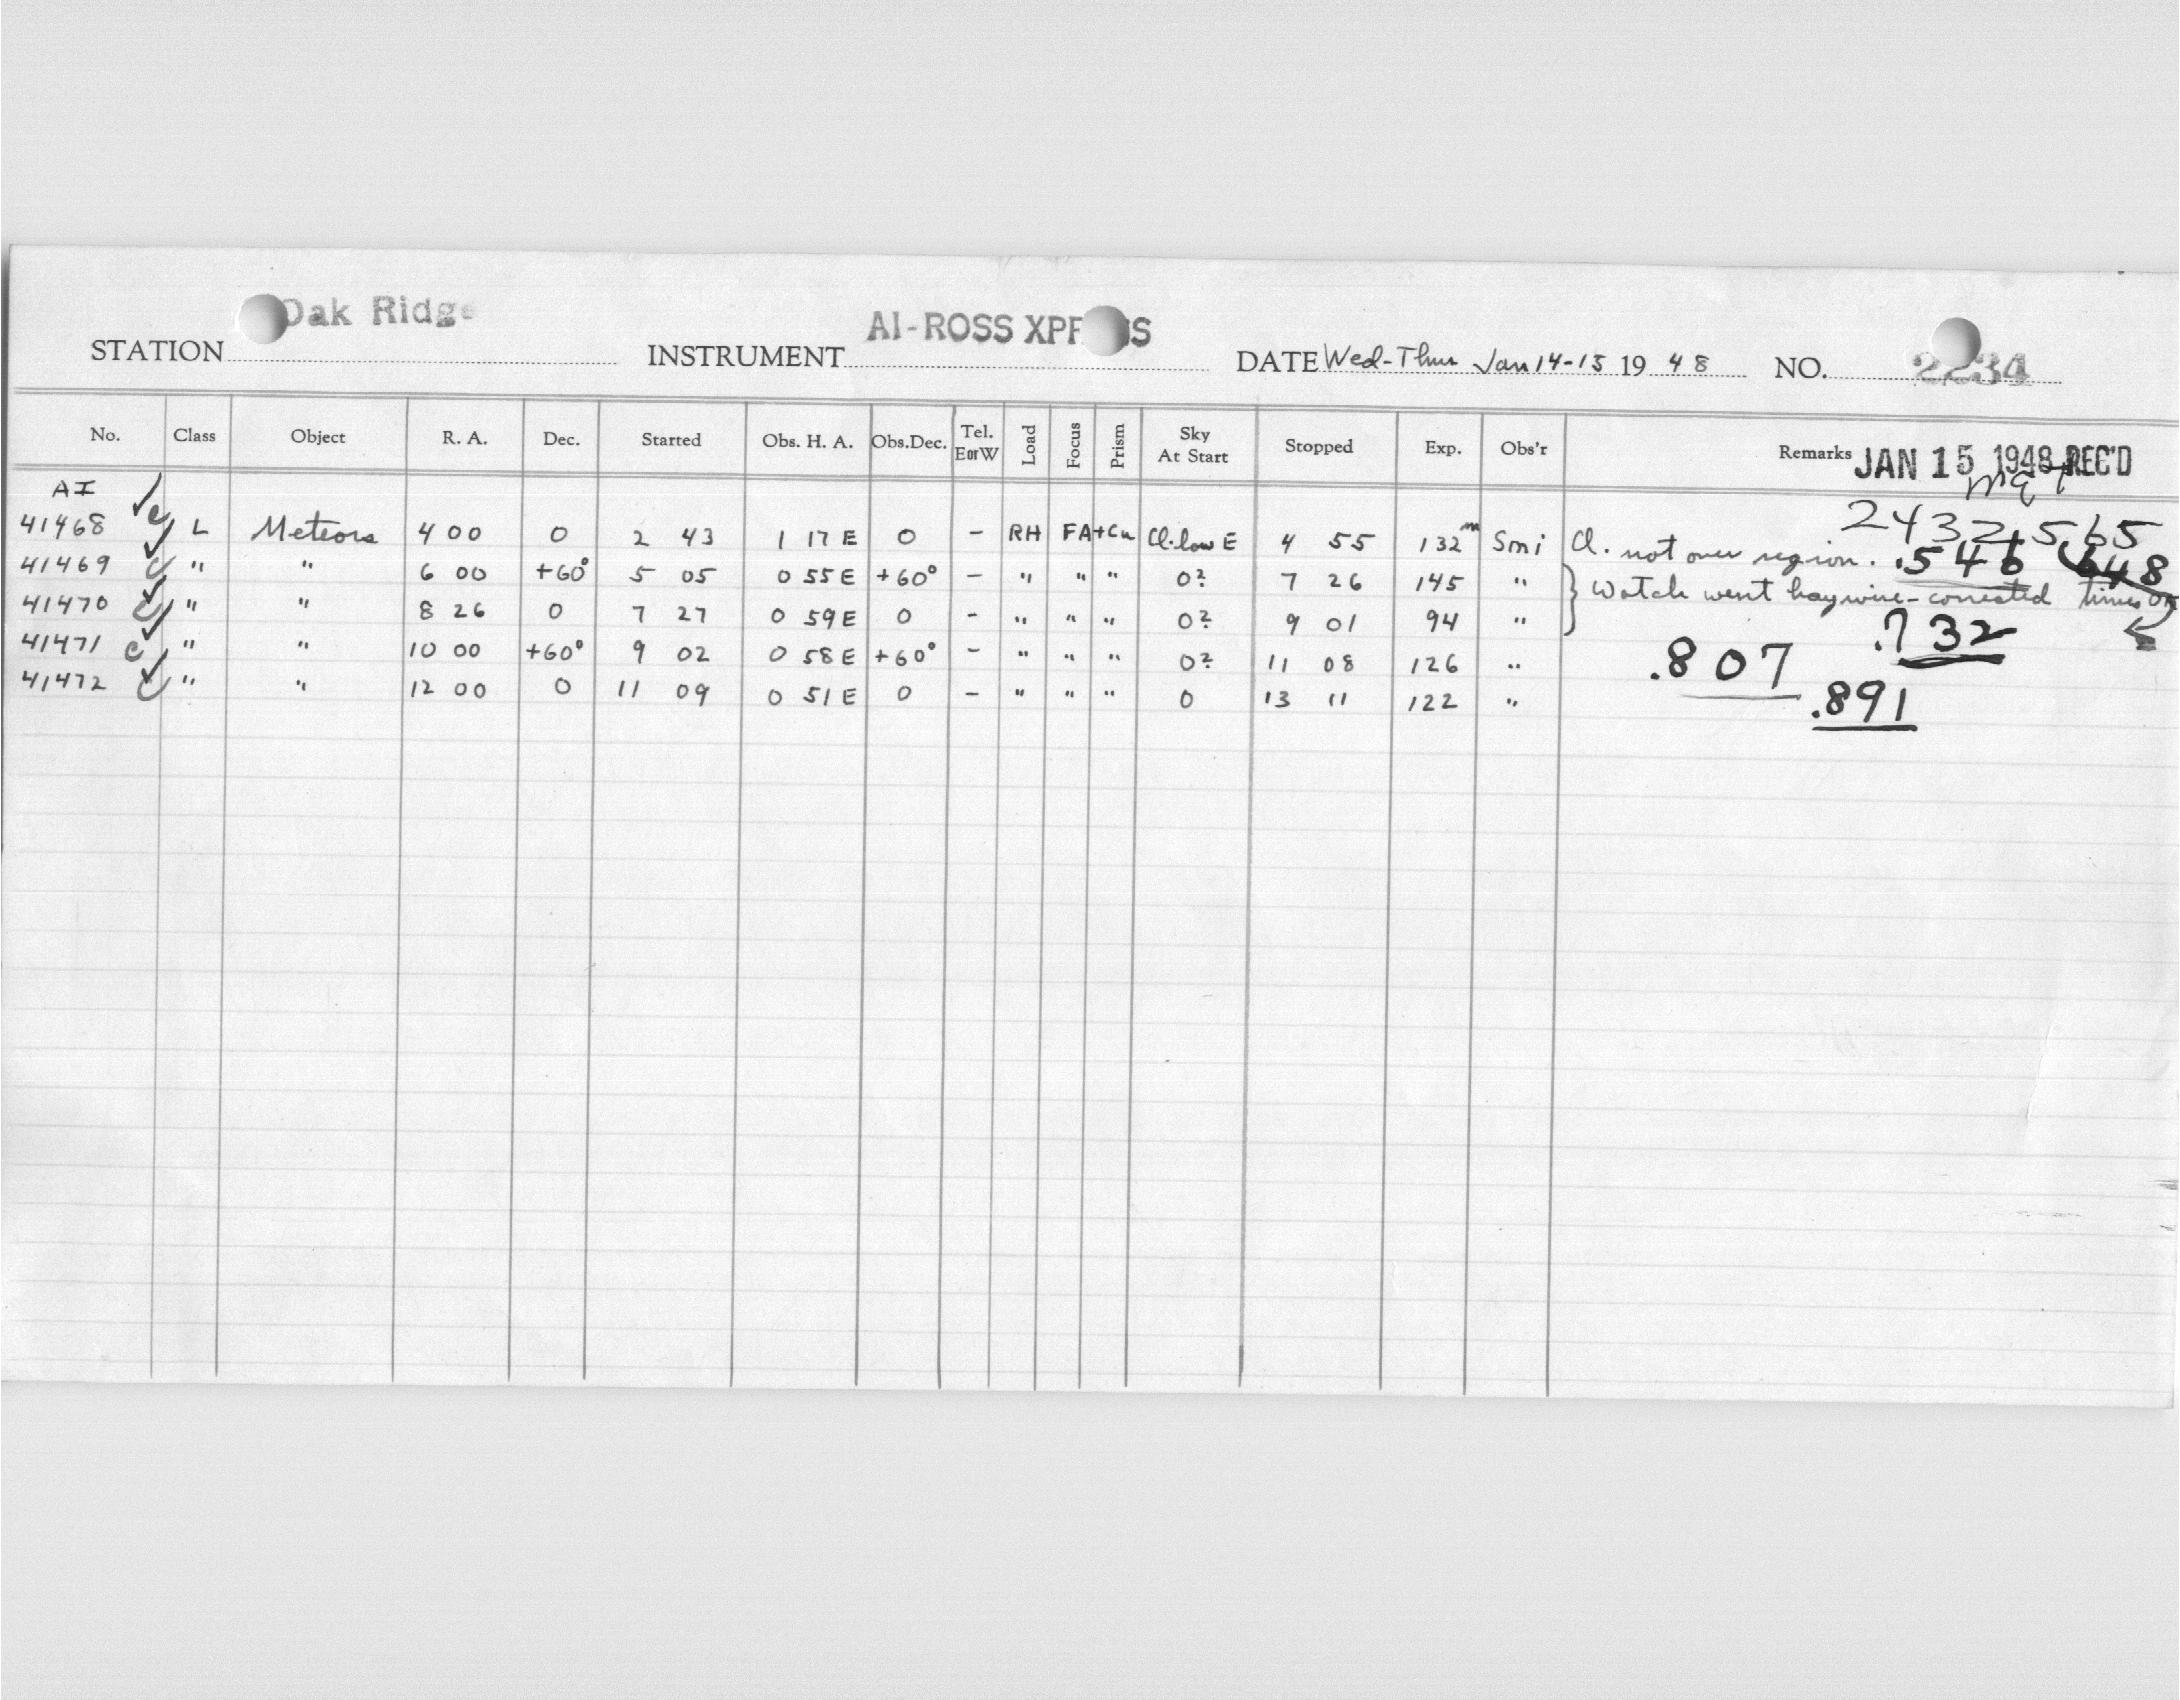 Oak Ridge
AI-ROSS XPRESS
STATION INSTRUMENT DATE Wed-Thur Jan 14-15 1948 NO. 2234
No. Class Object R. A. Dec. Started Obs. H. A. Obs.Dec. Tel. E or W Load Focus Prism Sky At Start Stopped Exp. Obs'r Remarks JAN 15 1948 REC'D
AI
2432,565
41468 L Meteors 4 00 0 2 43 1 17 E 0 - RH FA+Cu Cl. low E 4 55 132m Smi Cl. not over region. .546 648
41469 " " 6 00 +60° 5 05 0 55 E +60° - " " " 0? 7 26 145 " Watch went haywire-corrected times OK
41470 " " 8 26 0 7 27 0 59 E 0 - " " " 0? 9 01 94 " .732
41471 " " 10 00 +60° 9 02 0 58 E +60° - " " " 0? 11 08 126 " .807
41472 " " 12 00 0 11 09 0 51 E 0 - " " " 0 13 11 122 " .891